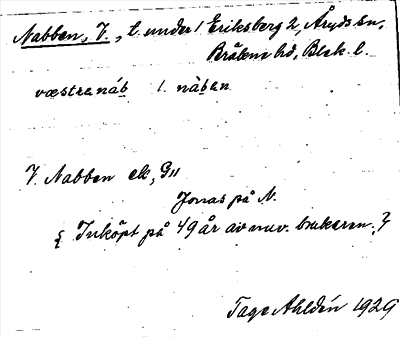 Nabben, V., t. under 1 Eriksberg 2, Åryds sn,
Bräkne hd, Blek. l.
væstra náb l. nàben
V. Nabben ek, G11
Jonas på N.
{ Inköpt på 49 år av nuv. brukaren. }
Tage Ahldén 1929